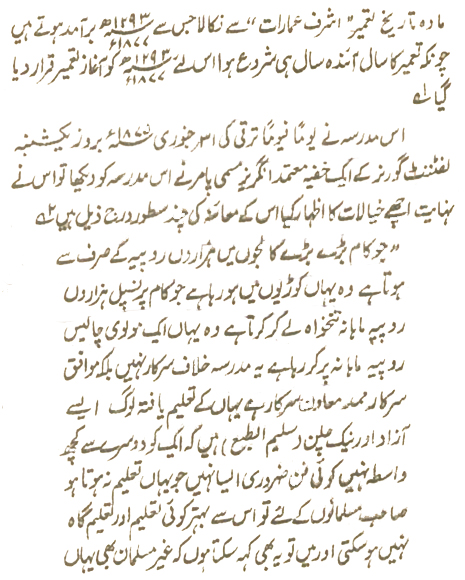 مادہ تاریخ تعمیر "اشرف عمارات" سے نکالا جس سے ۱۲۹۳ھ ۱۸۷۷ء برآمد ہوتے ہیں
چونکہ تعمیر کا سال آئندہ سال ہی شروع ہوا اس لئے ۱۲۹۳ھ ۱۸۷۷ء کو آغاز تعمیر قرار دیا
گیا
اس مدرسہ نے یوماً فیوماً ترقی کی ۳۱ جنوری بروز یکشنبہ
لفٹننٹ گورنر کے ایک خفیہ معتمد انگریز مسمی پامر نے اس مدرسہ کو دیکھا تو اس نے
نہایت اچھے خیالات کا اظہار کیا اس کے معائنہ کی چند سطور درج ذیل ہیں
"جو کام بڑے بڑے کالجوں میں ہزاروں روپیہ کے صرف سے
ہوتا ہے وہ یہاں کوڑیوں میں ہو رہا ہے جو کام پرنسپل ہزاروں
روپیہ ماہانہ تنخواہ لے کر کرتا ہے وہ یہاں ایک مولوی چالیس
روپیہ ماہانہ پر کر رہا ہے یہ مدرسہ خلاف سرکار نہیں بلکہ موافق
سرکار ممد معاون سرکار ہے یہاں کے تعلیم یافتہ لوگ ایسے
آزاد اور نیک چلن (سلیم الطبع) ہیں کہ ایک کو دوسرے سے کچھ
واسطہ نہیں کوئی فن ضروری ایسا نہیں جو یہاں تعلیم نہ ہوتا ہو
صاحب مسلمانوں کے لئے تو اس سے بہتر کوئی تعلیم اور تعلیم گاہ
نہیں ہو سکتی اور میں تو یہ بھی کہہ سکتا ہوں کہ غیر مسلمان بھی یہاں